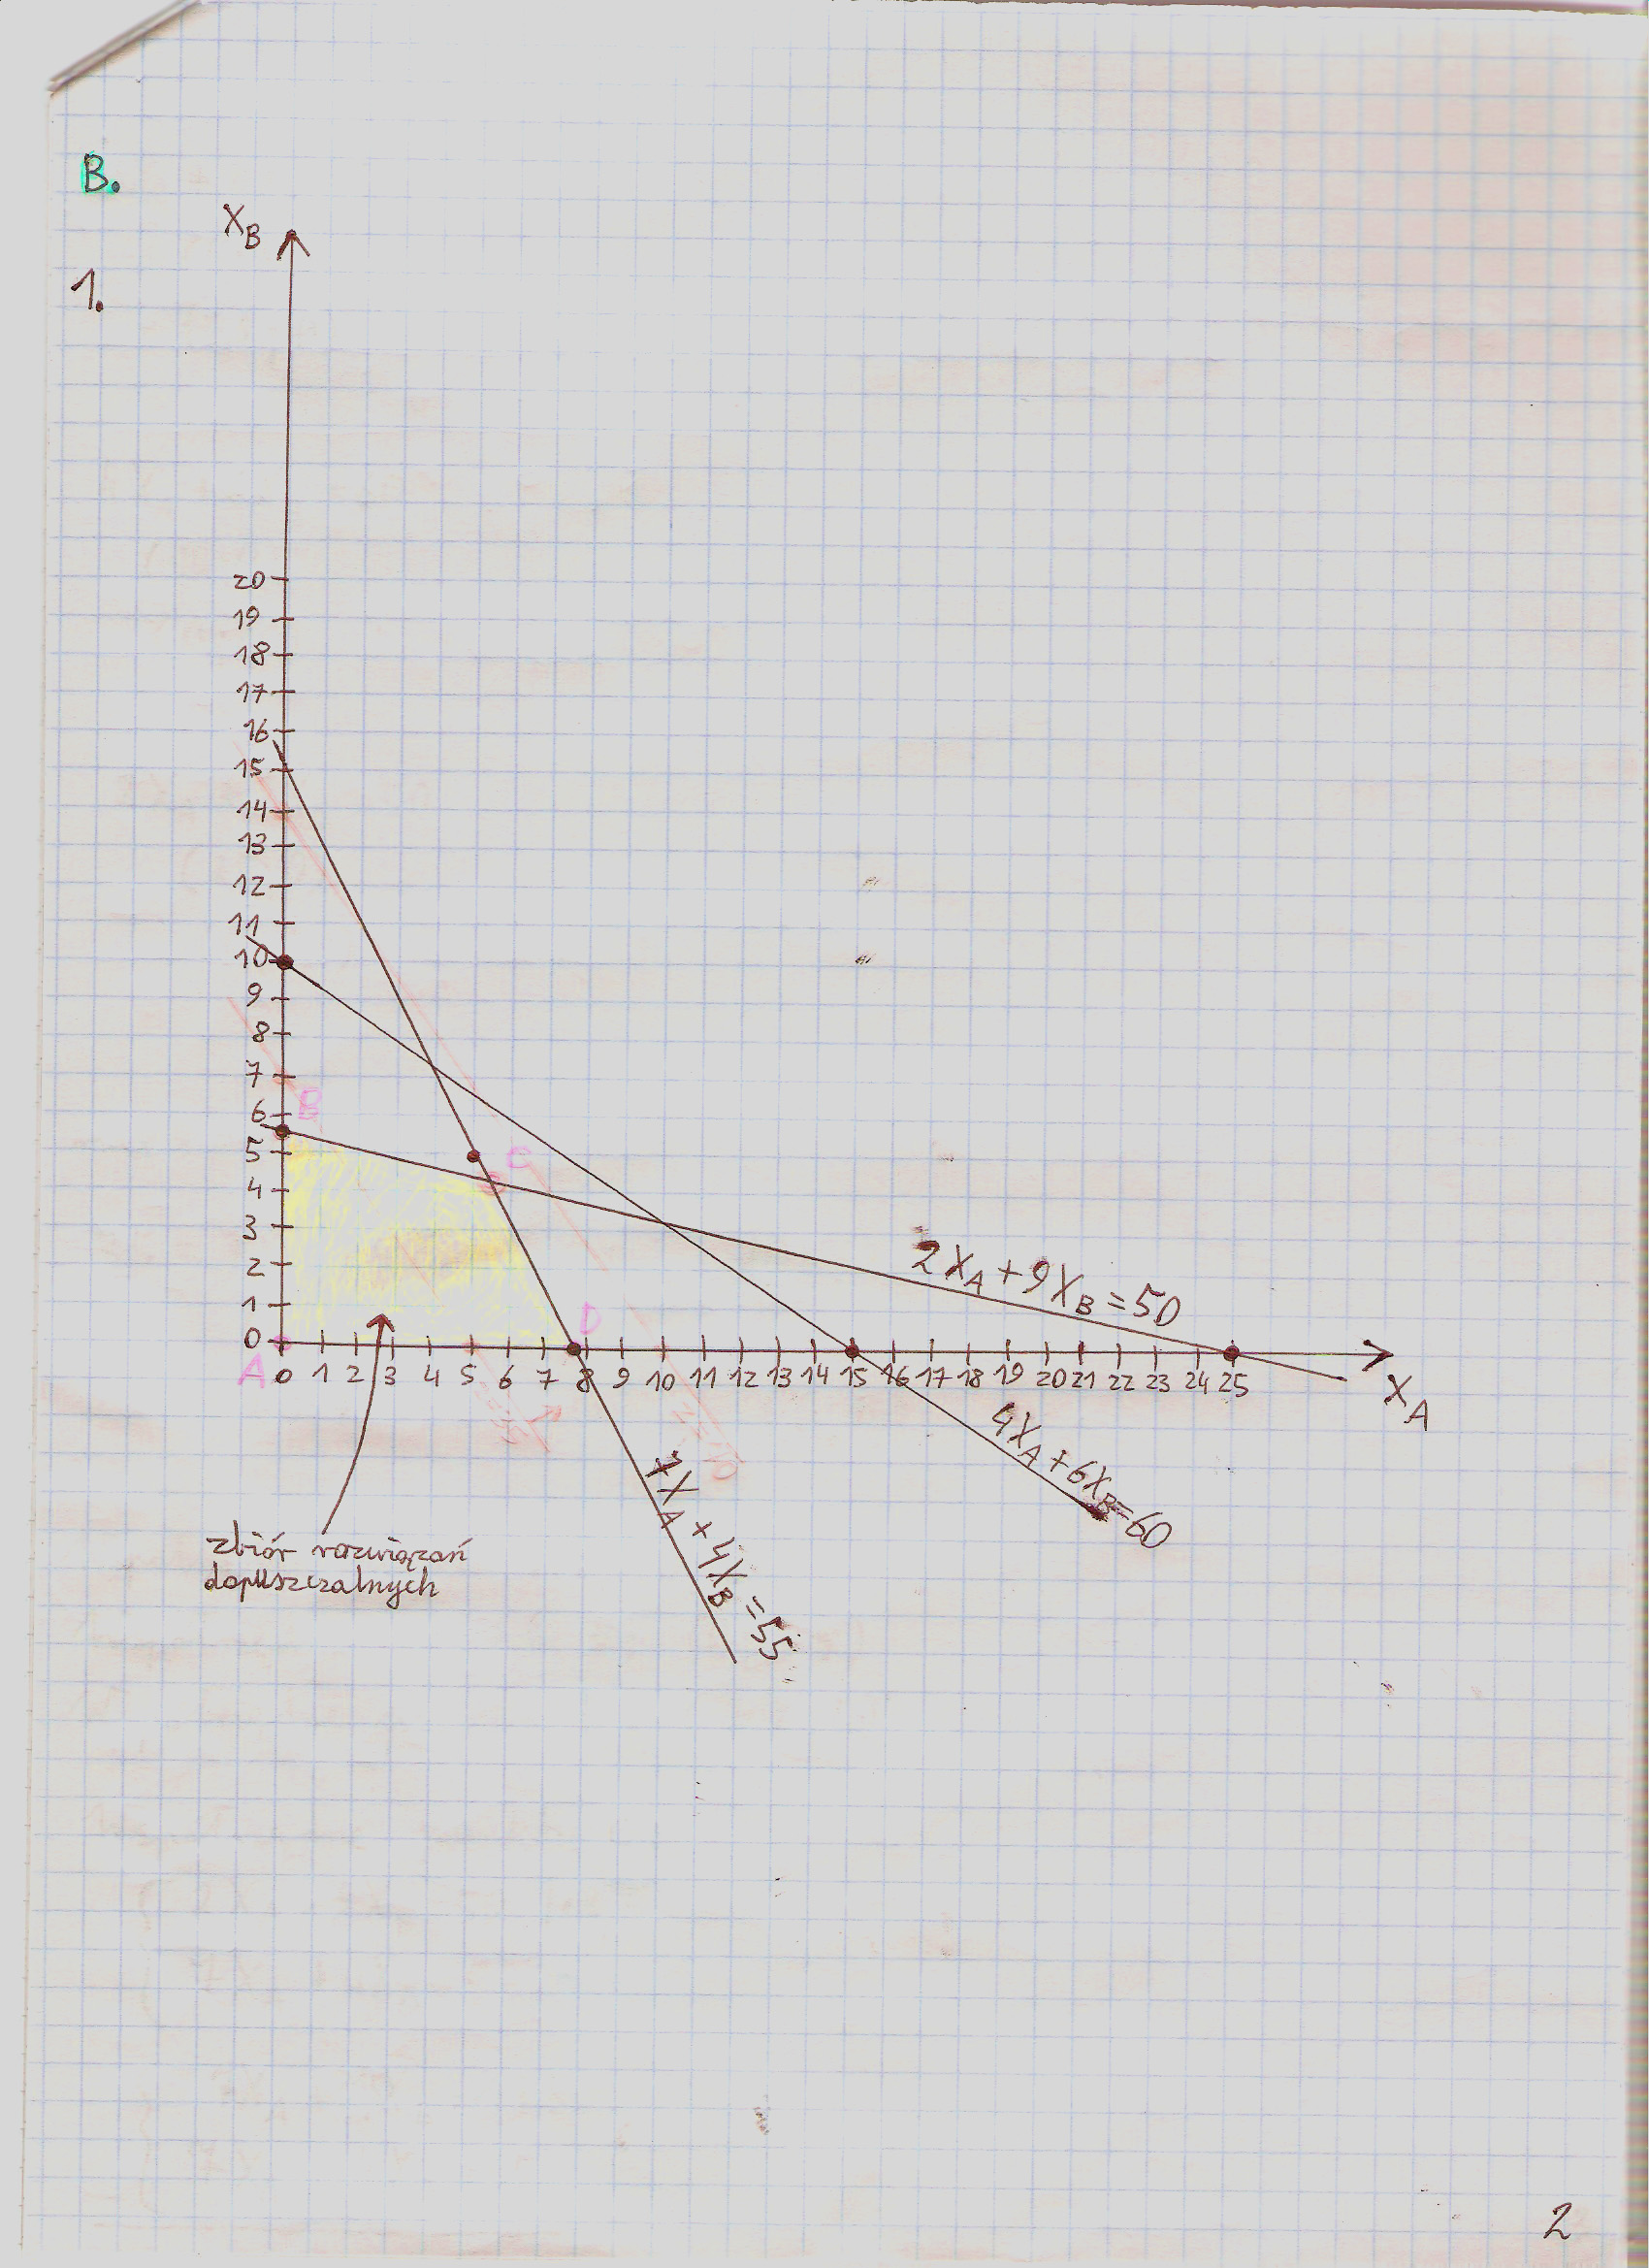 B.
X_B
1.
20
19
18
17
16
15
14
13
12
11
10
9
8
7
6
B
5
C
4
3
2
1
2X_A + 9X_B = 50
D
0
A 0 1 2 3 4 5 6 7 8 9 10 11 12 13 14 15 16 17 18 19 20 21 22 23 24 25
X_A
4X_A + 6X_B = 60
7X_A + 4X_B = 55
zbiór rozwiązań
dopuszczalnych
2